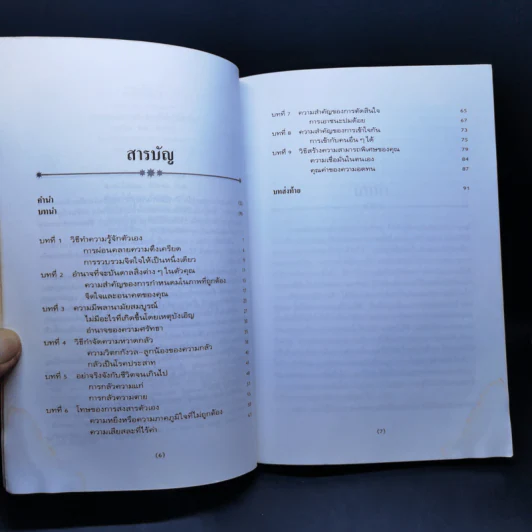 สารบัญ
คำนำ
บทนำ
บทที่ 1 วิธีทำความรู้จักตัวเอง
การผ่อนคลายความตึงเครียด
การรวบรวมจิตใจให้เป็นหนึ่งเดียว
บทที่ 2 อำนาจที่จะบันดาลสิ่งต่าง ๆ ในตัวคุณ
ความสำคัญของการกำหนดมโนภาพที่ถูกต้อง
จิตใจและอนาคตของคุณ
บทที่ 3 ความมีพลานามัยสมบูรณ์
ไม่มีอะไรที่เกิดขึ้นโดยเหตุบังเอิญ
อำนาจของความศรัทธา
บทที่ 4 วิธีกำจัดความหวาดกลัว
ความวิตกกังวล-ลูกน้องของความกลัว
กลัวเป็นโรคประสาท
บทที่ 5 อย่าจริงจังกับชีวิตจนเกินไป
การกลัวความแก่
การกลัวความตาย
บทที่ 6 โทษของการสงสารตัวเอง
ความหยิ่งหรือความภาคภูมิใจที่ไม่ถูกต้อง
ความเสียสละที่ไร้ค่า
(6)
บทที่ 7 ความสำคัญของการตัดสินใจ 65
การเอาชนะปมด้อย 67
บทที่ 8 ความสำคัญของการเข้าใจกัน 73
การเข้ากับคนอื่น ๆ ได้ 75
บทที่ 9 วิธีสร้างความสามารถพิเศษของคุณ 79
ความเชื่อมั่นในตนเอง 84
คุณค่าของความอดทน 87
บทส่งท้าย 91
(7)